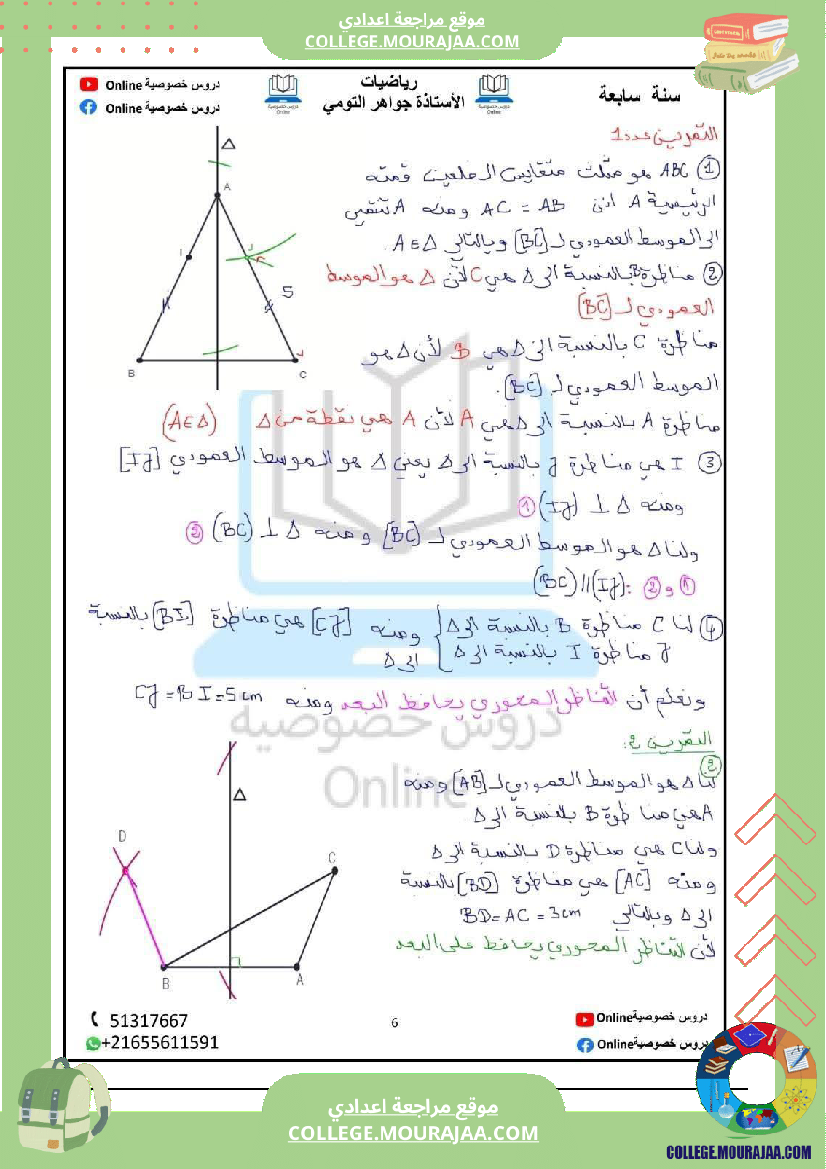 موقع مراجعة اعدادي
COLLEGE.MOURAJAA.COM
سنة سابعة
رياضيات
الأستاذة جواهر التومي
دروس خصوصية Online
دروس خصوصية Online
دروس خصوصية Online
دروس خصوصية Online
التمرين عدد 1
① ABC هو مثلث متقايس الضلعين قمته
الرئيسية A اذن AC = AB ومنه A تنتمي
الى الموسط العمودي لـ [BC] وبالتالي A∈Δ.
② مناظرة B بالنسبة الى Δ هي C لأن Δ هو الموسط
العمودي لـ [BC]
مناظرة C بالنسبة الى Δ هي B لأن Δ هو
الموسط العمودي لـ [BC].
مناظرة A بالنسبة الى Δ هي A لأن A هي نقطة من Δ (A∈Δ)
③ I هي مناظرة J بالنسبة الى Δ يعني Δ هو الموسط العمودي [IJ]
ومنه Δ ⊥ (IJ) ①
ولنا Δ هو الموسط العمودي لـ [BC] ومنه Δ ⊥ (BC) ②
① و ② : (IJ)//(BC)
④ لنا C مناظرة B بالنسبة الى Δ
J مناظرة I بالنسبة الى Δ
ومنه [CJ] هي مناظرة [BI] بالنسبة
الى Δ
ونعلم أن التناظر المحوري يحافظ البعد ومنه CJ = BI = 5cm
Δ
A
I
J
5
B
C
دروس خصوصية
Online
التمرين 2:
②
لنا Δ هو الموسط العمودي لـ [AB] ومنه
A هي مناظرة B بالنسبة الى Δ
ولنا C هي مناظرة D بالنسبة الى Δ
ومنه [AC] هي مناظرة [BD] بالنسبة
الى Δ وبالتالي BD = AC = 3cm
لأن التناظر المحوري يحافظ على البعد
Δ
D
C
B
A
51317667
+21655611591
6
دروس خصوصية Online
دروس خصوصية Online
موقع مراجعة اعدادي
COLLEGE.MOURAJAA.COM
COLLEGE.MOURAJAA.COM